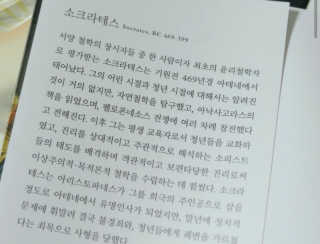 소크라테스 Socrates, BC 469-399
서양 철학의 창시자들 중 한 사람이자 최초의 윤리철학자
로 평가받는 소크라테스는 기원전 469년경 아테네에서
태어났다. 그의 어린 시절과 청년 시절에 대해서는 알려진
것이 거의 없지만, 자연철학을 탐구했고, 아낙사고라스의
책을 읽었으며, 펠로폰네소스 전쟁에 여러 차례 참전했다
고 전해진다. 이후 그는 평생 교육자로서 청년들을 교화하
였고, 진리를 상대적이고 주관적으로 해석하는 소피스트
들의 태도를 배격하며 객관적이고 보편타당한 진리로써
이상주의적·목적론적 철학을 수립하는 데 힘썼다. 소크라
테스는 아리스토파네스가 그를 희극의 주인공으로 삼을
정도로 아테네에서 유명인사가 되었지만, 말년에 정치적
문제에 휘말려 결국 불경죄와, 청년들에게 폐변을 가르쳤
다는 죄목으로 사형을 당했다.